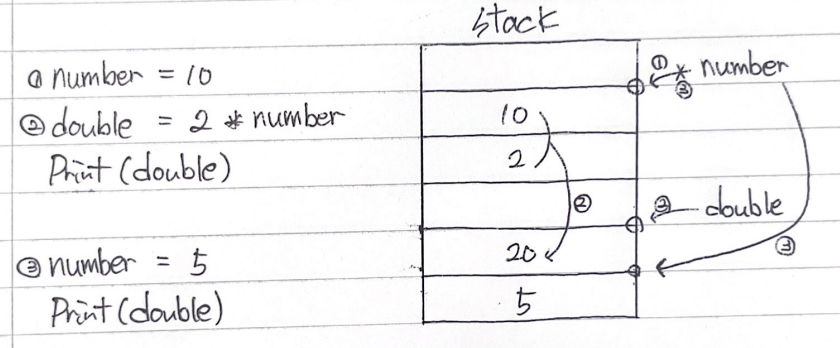 stack
① number = 10
② double = 2 * number
Print (double)
③ number = 5
Print (double)
10
2
20
5
①
③
number
②
② double
③